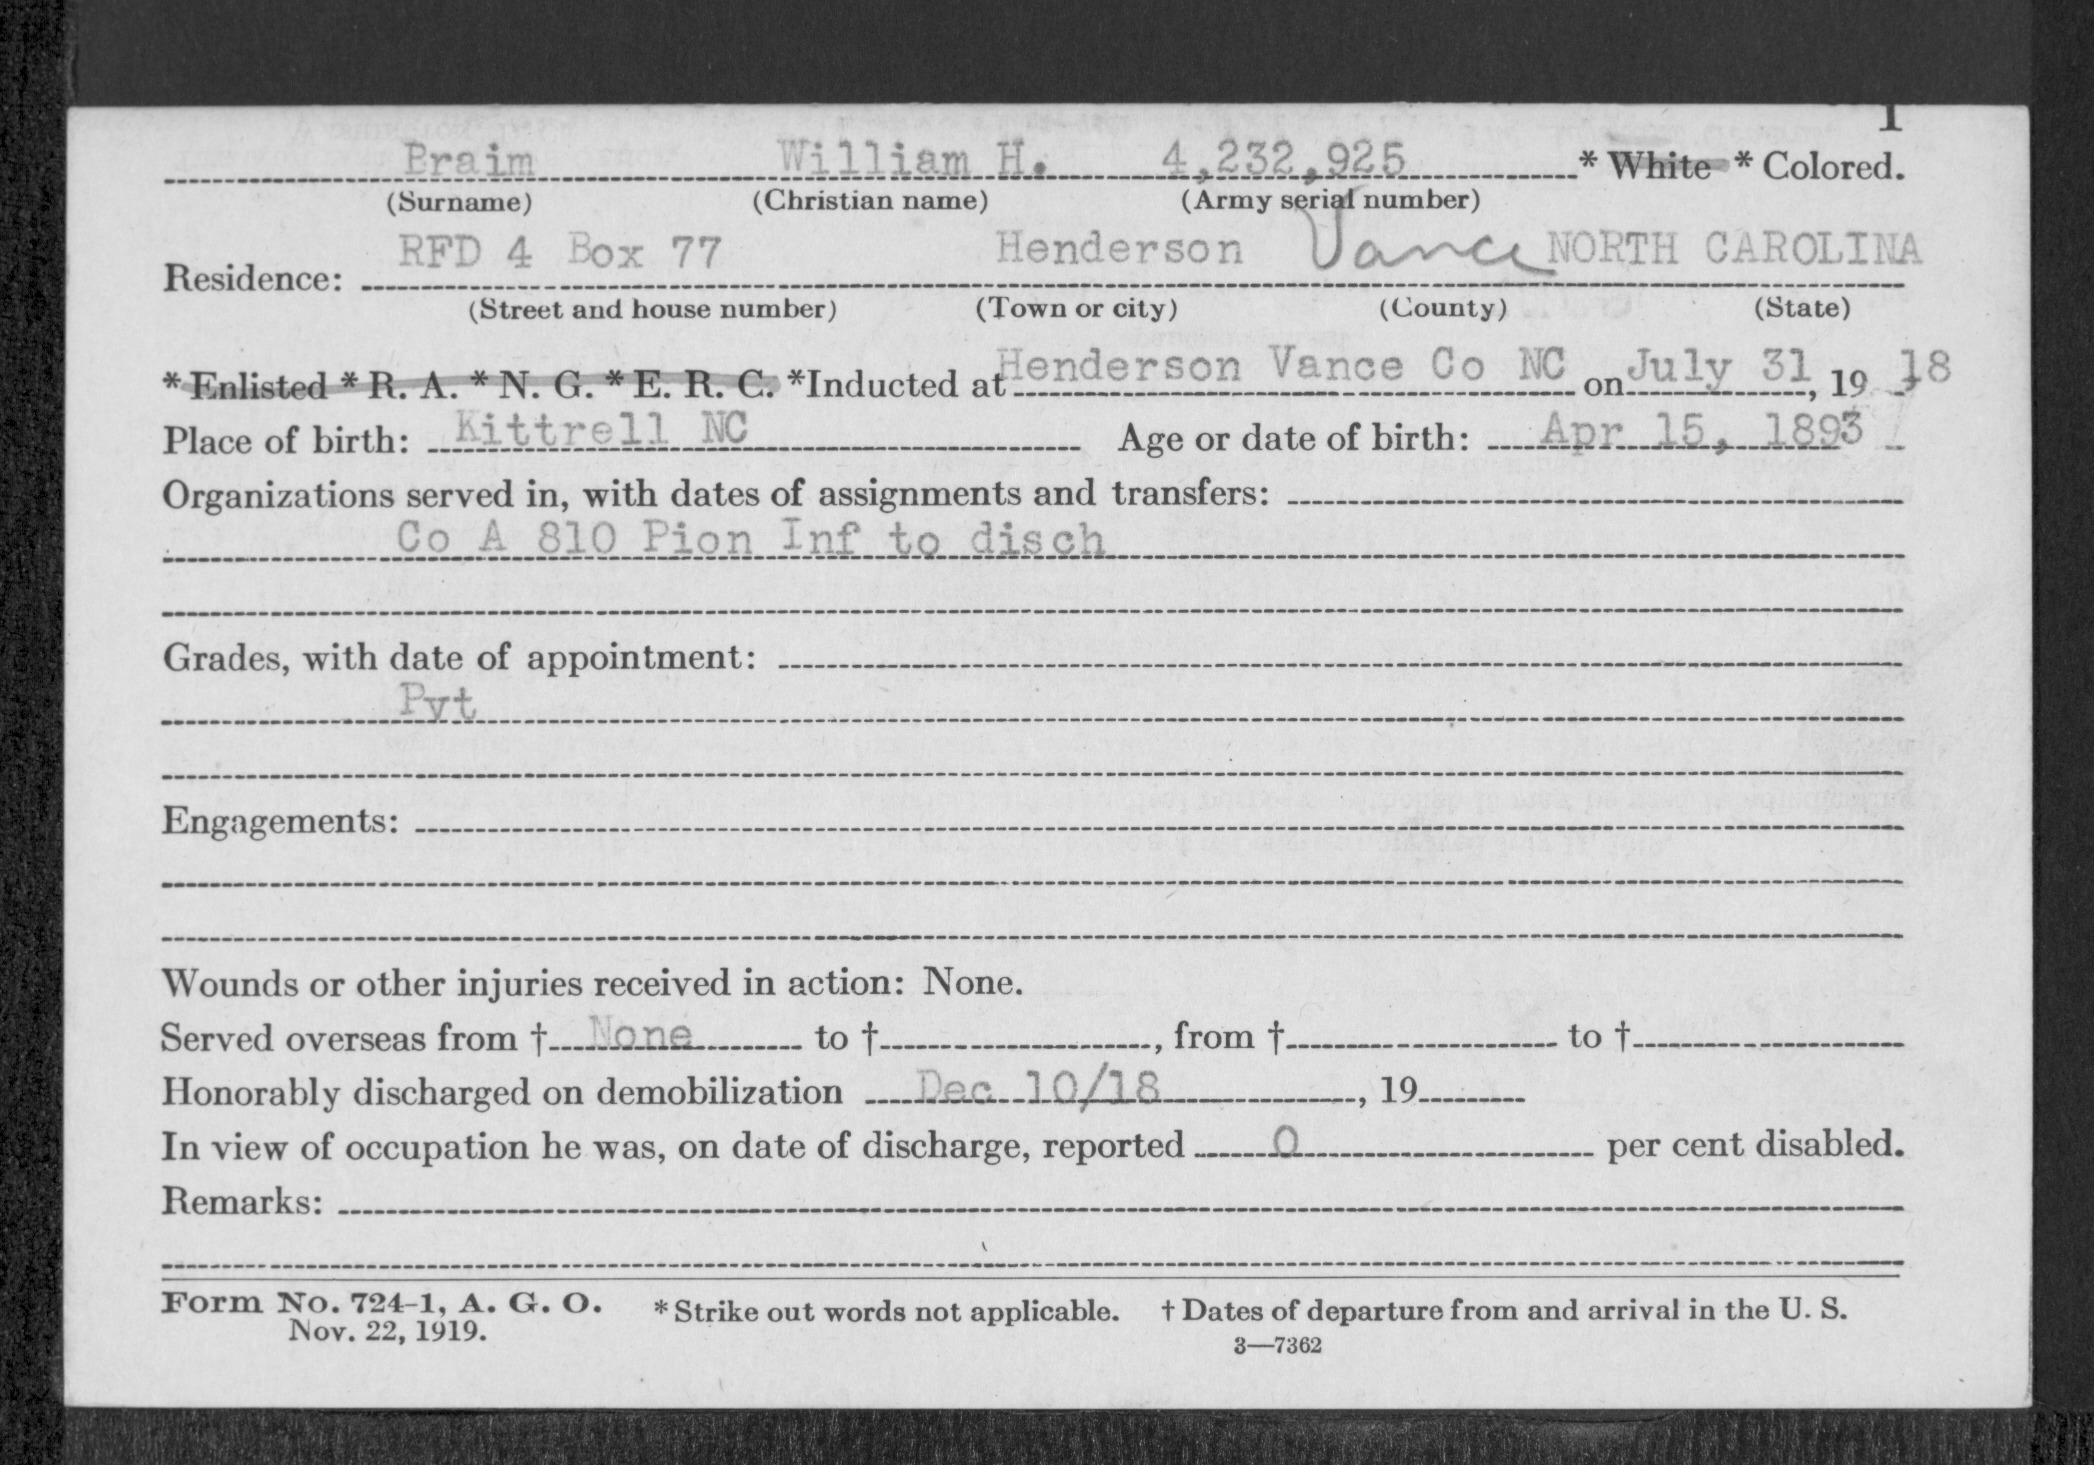 1
Braim William H. 4,232,925 * White * Colored.
(Surname) (Christian name) (Army serial number)
RFD 4 Box 77 Henderson Vance NORTH CAROLINA
Residence:
(Street and house number) (Town or city) (County) (State)
* Enlisted * R. A. * N. G. * E. R. C. *Inducted at Henderson Vance Co NC on July 31, 19 18
Place of birth: Kittrell NC Age or date of birth: Apr 15, 1893
Organizations served in, with dates of assignments and transfers:
Co A 810 Pion Inf to disch
Grades, with date of appointment:
Pvt
Engagements:
Wounds or other injuries received in action: None.
Served overseas from † None to †, from † to †
Honorably discharged on demobilization Dec 10/18, 19
In view of occupation he was, on date of discharge, reported 0 per cent disabled.
Remarks:
Form No. 724-1, A. G. O. * Strike out words not applicable. † Dates of departure from and arrival in the U. S.
Nov. 22, 1919. 3—7362